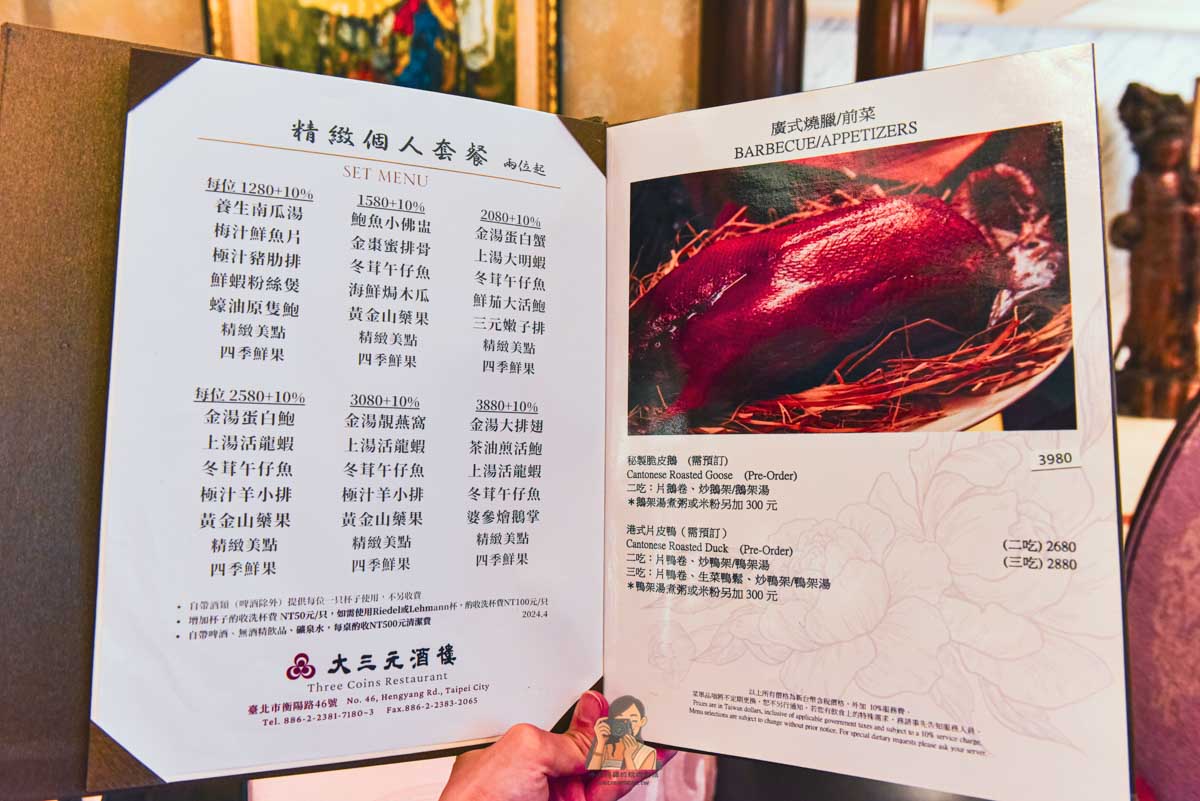 精緻個人套餐 兩位起
SET MENU
每位 1280+10%
養生南瓜湯
梅汁鮮魚片
極汁豬肋排
鮮蝦粉絲煲
蠔油原隻鮑
精緻美點
四季鮮果
1580+10%
鮑魚小佛盅
金棗蜜排骨
冬茸午仔魚
海鮮焗木瓜
黃金山藥果
精緻美點
四季鮮果
2080+10%
金湯蛋白蟹
上湯大明蝦
冬茸午仔魚
鮮茄大活鮑
三元嫩子排
精緻美點
四季鮮果
每位 2580+10%
金湯蛋白鮑
上湯活龍蝦
冬茸午仔魚
極汁羊小排
黃金山藥果
精緻美點
四季鮮果
3080+10%
金湯靚燕窩
上湯活龍蝦
冬茸午仔魚
極汁羊小排
黃金山藥果
精緻美點
四季鮮果
3880+10%
金湯大排翅
茶油煎活鮑
上湯活龍蝦
冬茸午仔魚
婆參燴鵝掌
精緻美點
四季鮮果
• 自帶酒類（啤酒除外）提供每位一只杯子使用，不另收費
• 增加杯子酌收洗杯費 NT50元/只，如需使用Riedel或Lehmann杯，酌收洗杯費NT100元/只
• 自帶啤酒、無酒精飲品、礦泉水，每桌酌收NT500元清潔費
2024.4
大三元酒樓
Three Coins Restaurant
臺北市衡陽路46號 No. 46, Hengyang Rd., Taipei City
Tel. 886-2-2381-7180~3 Fax.886-2-2383-2065
廣式燒臘/前菜
BARBECUE/APPETIZERS
秘製脆皮鵝 (需預訂)
3980
Cantonese Roasted Goose (Pre-Order)
二吃：片鵝卷、炒鵝架/鵝架湯
＊鵝架湯煮粥或米粉另加 300 元
港式片皮鴨（需預訂）
Cantonese Roasted Duck (Pre-Order)
二吃：片鴨卷、炒鴨架/鴨架湯
(二吃) 2680
三吃：片鴨卷、生菜鴨鬆、炒鴨架/鴨架湯
(三吃) 2880
＊鴨架湯煮粥或米粉另加 300 元
以上所有價格為新台幣含稅價格，外加 10%服務費。
菜單品項將不定期更換，恕不另行通知，若您有飲食上的特殊需求，務請事先告知服務人員。
Prices are in Taiwan dollars, inclusive of applicable government taxes and subject to a 10% service charge.
Menu selections are subject to change without prior notice. For special dietary requests please ask your server.